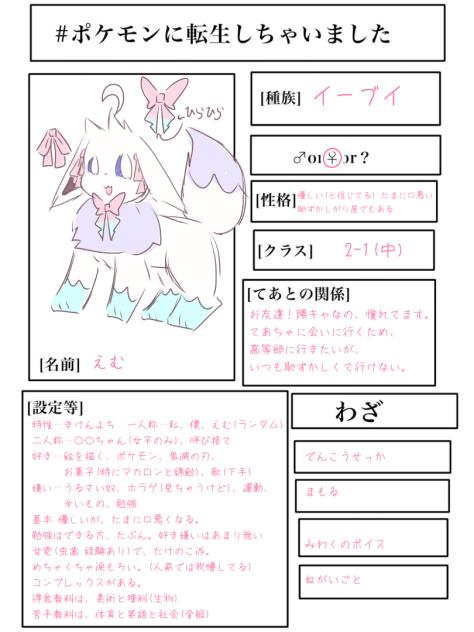 #ポケモンに転生しちゃいました
[種族] イーブイ
ひらひら
♂or♀or？
[性格] 優しい(と信じてる) たまに口悪い
恥ずかしがり屋でもある
[クラス] 2-1(中)
[てあとの関係]
お友達！陽キャなの、憧れてます。
てあちゃに会いに行くため、
高等部に行きたいが、
いつも恥ずかしくて行けない。
[名前] えむ
[設定等]
特性…きけんよち 一人称…私、僕、えむ(ランダム)
二人称…〇〇ちゃん(女子のみ)、呼び捨て
好き…絵を描く、ポケモン、鬼滅の刃、
お菓子(特にマカロンと錦飴)、歌(下手)
嫌い…うるさい奴、ホラゲ(見ちゃうけど)、運動、
辛いもの、勉強
基本 優しいが、たまに口悪くなる。
勉強はできる方、たぶん。好き嫌いはあまり無い
甘党(虫歯 経験あり)で、たけのこ派。
めちゃくちゃ涙もろい。(人前では我慢してる)
コンプレックスがある。
得意教科は、美術と理科(生物)
苦手教科は、体育と英語と社会(全般)
わざ
でんこうせっか
まもる
みわくのボイス
ねがいごと